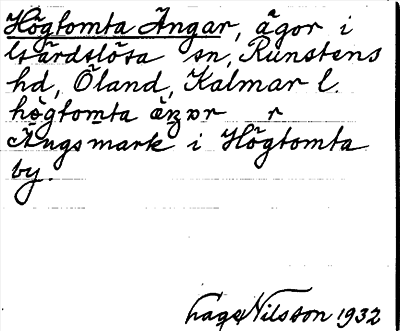 Högtomta Ängar, ägor i
Gärdslösa sn, Runstens
hd, Öland, Kalmar l.
högtomta
Ängsmark i Högtomta
by.
Nilsson 1932